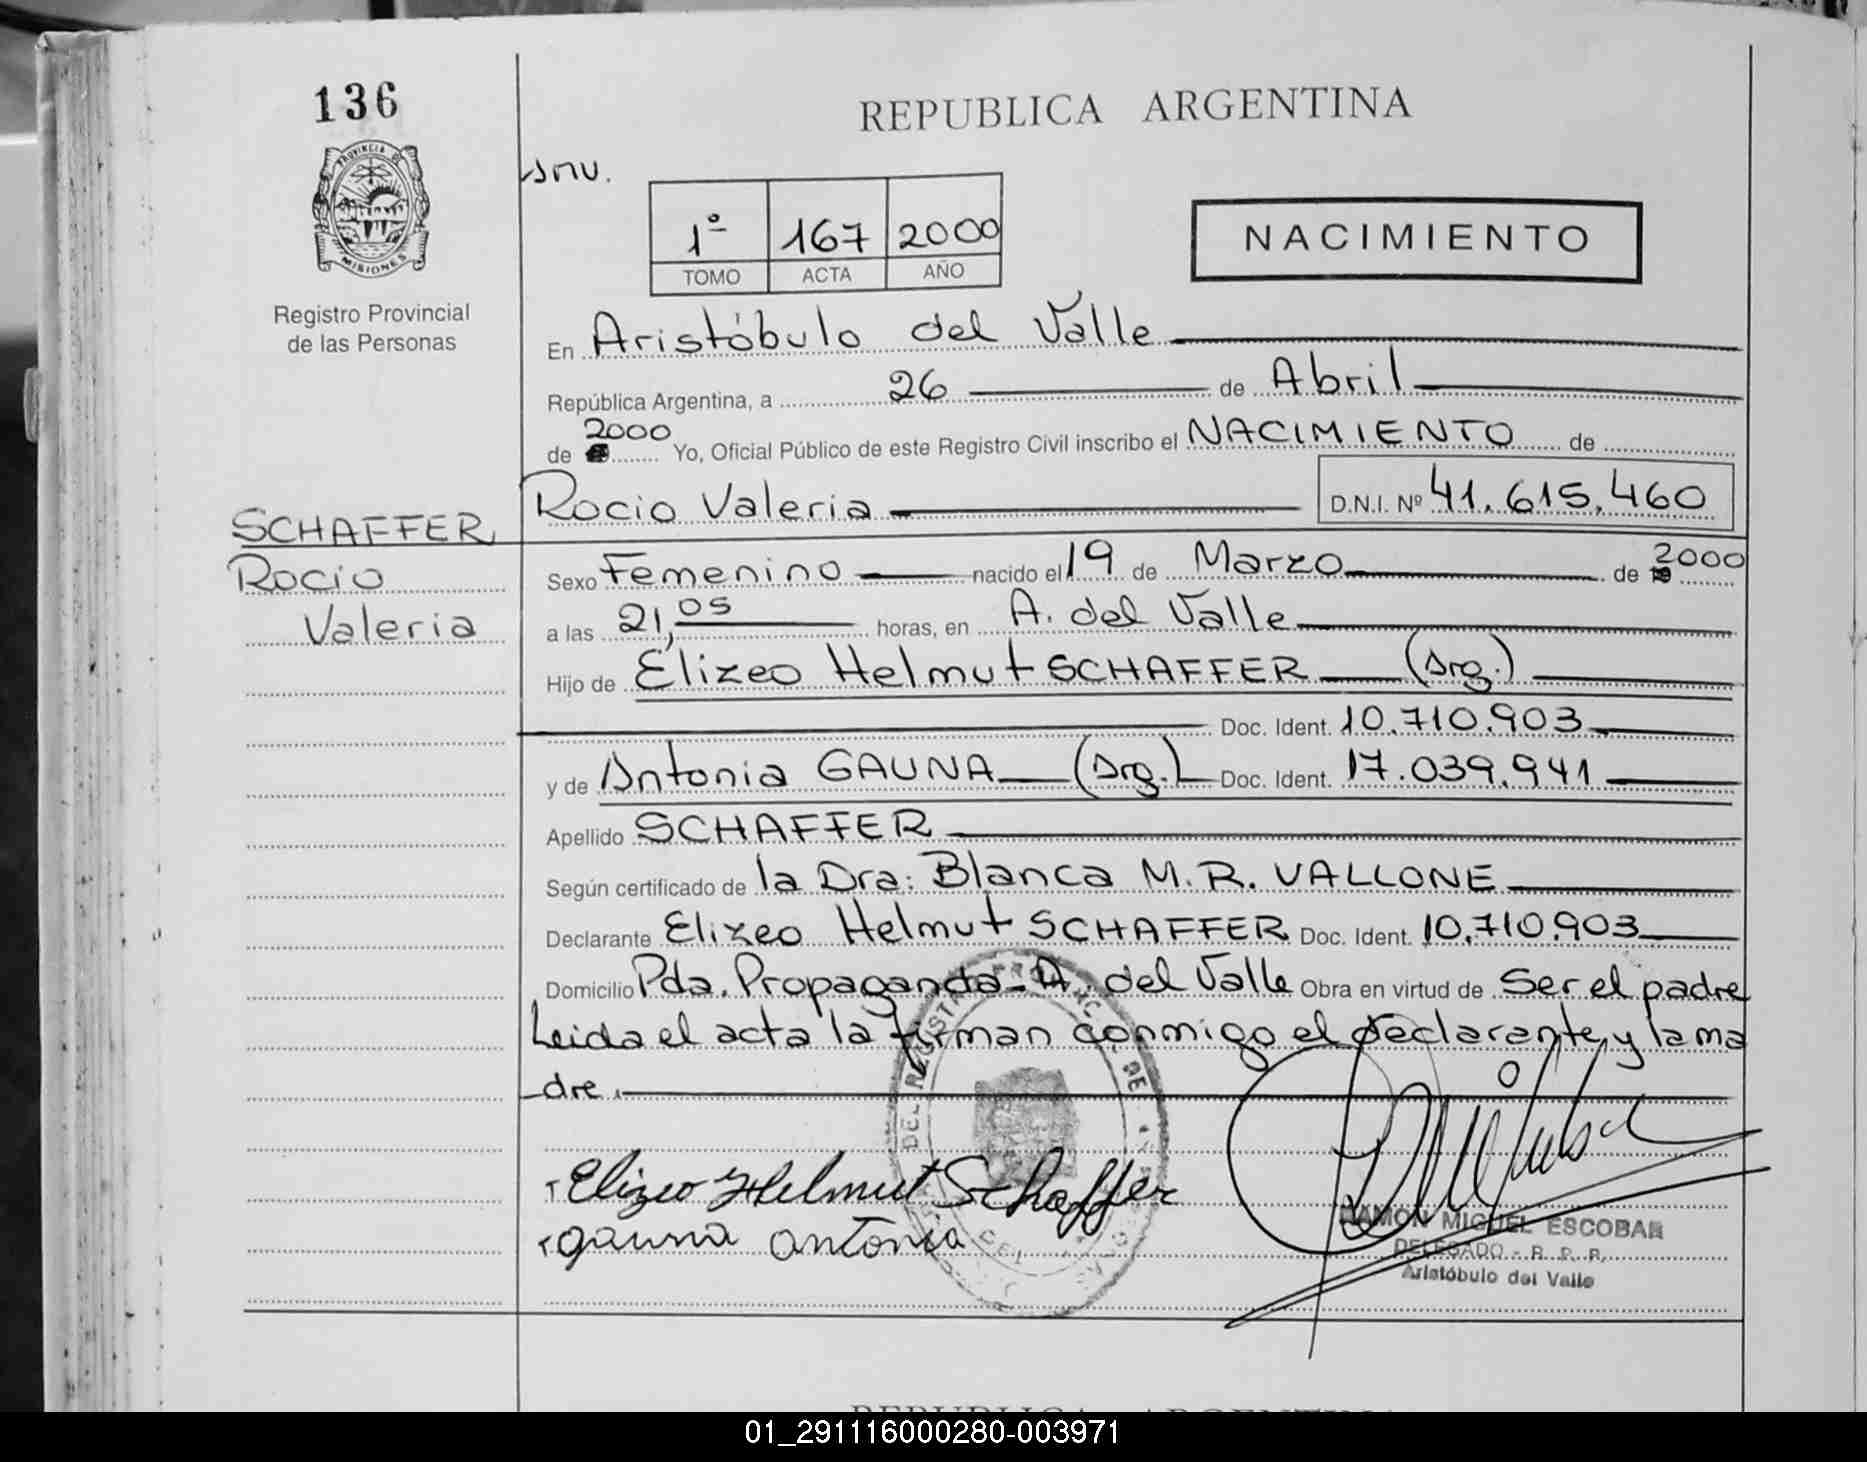 136
PROVINCIA DE
MISIONES
Registro Provincial
de las Personas
REPUBLICA ARGENTINA
1º 167 2000
TOMO ACTA AÑO
NACIMIENTO
En Aristóbulo del Valle
República Argentina, a 26 de Abril
de 2000 Yo, Oficial Público de este Registro Civil inscribo el NACIMIENTO de
Rocio Valeria D.N.I. Nº 41.615.460
SCHAFFER
Rocio
Valeria
Sexo Femenino nacido el 19 de Marzo de 2000
a las 21,05 horas, en A. del Valle
Hijo de Elizeo Helmut SCHAFFER (Arg.)
Doc. Ident. 10.710.903
y de Antonia GAUNA (Arg.) Doc. Ident. 17.039.941
Apellido SCHAFFER
Según certificado de la Dra: Blanca M.R. VALLONE
Declarante Elizeo Helmut SCHAFFER Doc. Ident. 10.710.903
Domicilio Pda. Propaganda - A. del Valle Obra en virtud de Ser el padre
Leida el acta la firman conmigo el declarante y la ma
dre.
Elizeo Helmut Schaffer
gauna antonia
RAMON MIGUEL ESCOBAR
DELEGADO - R. P. P.
Aristóbulo del Valle
REPUBLICA ARGENTINA
01_291116000280-003971